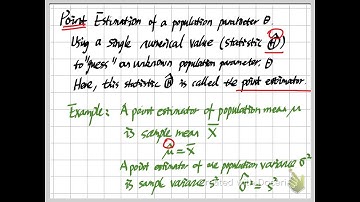 Point Estimation of a population parameter θ.
Using a single numerical value (statistic θ̂)
to "guess" an unknown population parameter θ.
Here, this statistic θ̂ is called the point estimator.
Example: A point estimator of population mean μ
is sample mean X̄
μ̂ = X̄
A point estimator of the population variance σ²
is sample variance s² σ̂² = s²